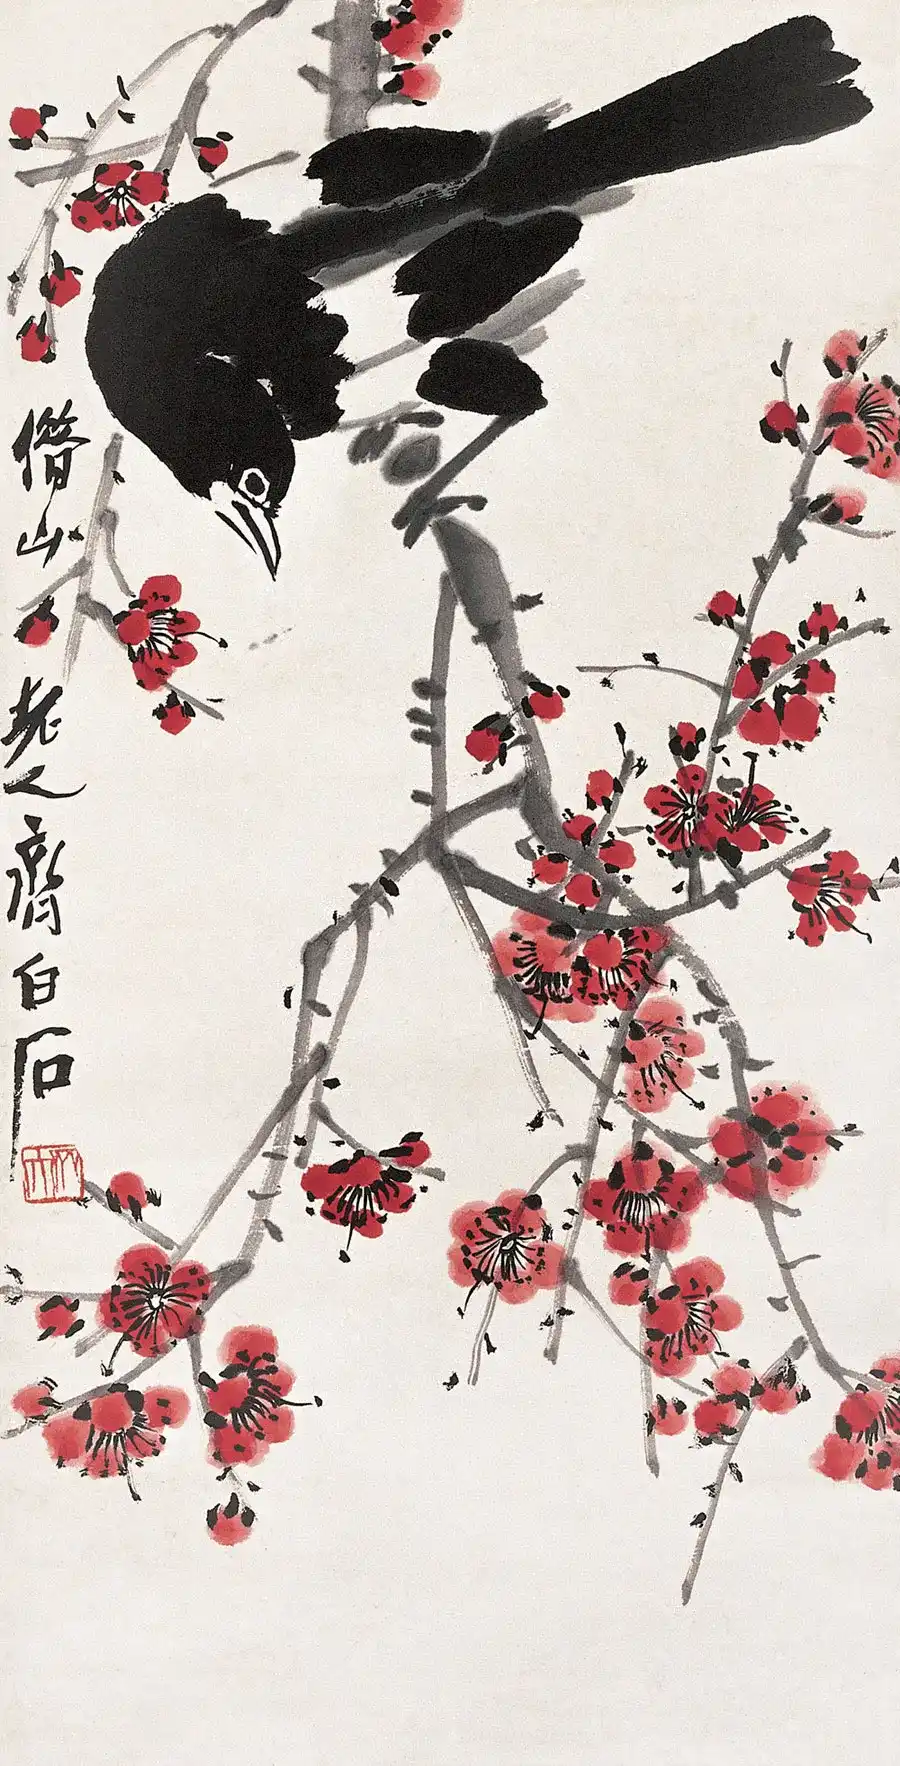 借山老人齊白石